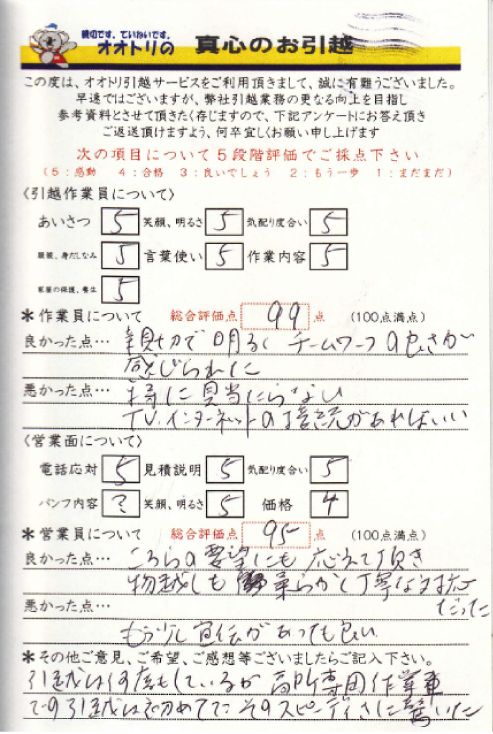 親切です。ていねいです。
オオトリの 真心のお引越
この度は、オオトリ引越サービスをご利用頂きまして、誠に有難うございました。
早速ではございますが、弊社引越業務の更なる向上を目指し
参考資料とさせて頂きたく存じますので、下記アンケートにお答え頂き
ご返送頂けますよう、何卒宜しくお願い申し上げます
次の項目について5段階評価でご採点下さい
(5:感動 4:合格 3:良いでしょう 2:もう一歩 1:まだまだ)
〈引越作業員について〉
あいさつ 5 笑顔、明るさ 5 気配り度合い 5
服装、身だしなみ 5 言葉使い 5 作業内容 5
家屋の保護、養生 5
*作業員について 総合評価点 99 点 (100点満点)
良かった点… 親切で明るく チームワークの良さが
感じられた
悪かった点… 特に見当たらない
TV、インターネットの接続があればいい
〈営業面について〉
電話応対 5 見積説明 5 気配り度合い 5
パンフ内容 ? 笑顔、明るさ 5 価格 4
*営業員について 総合評価点 95 点 (100点満点)
良かった点… こちらの要望にも 応えて頂き
物越しも 柔らかく丁寧な対応
だった
悪かった点…
もう少し宣伝があっても良い
*その他ご意見、ご希望、ご感想等ございましたらご記入下さい。
引越は何度もしているが 高所専用作業車
での引越は初めてで そのスピーディさに驚いた